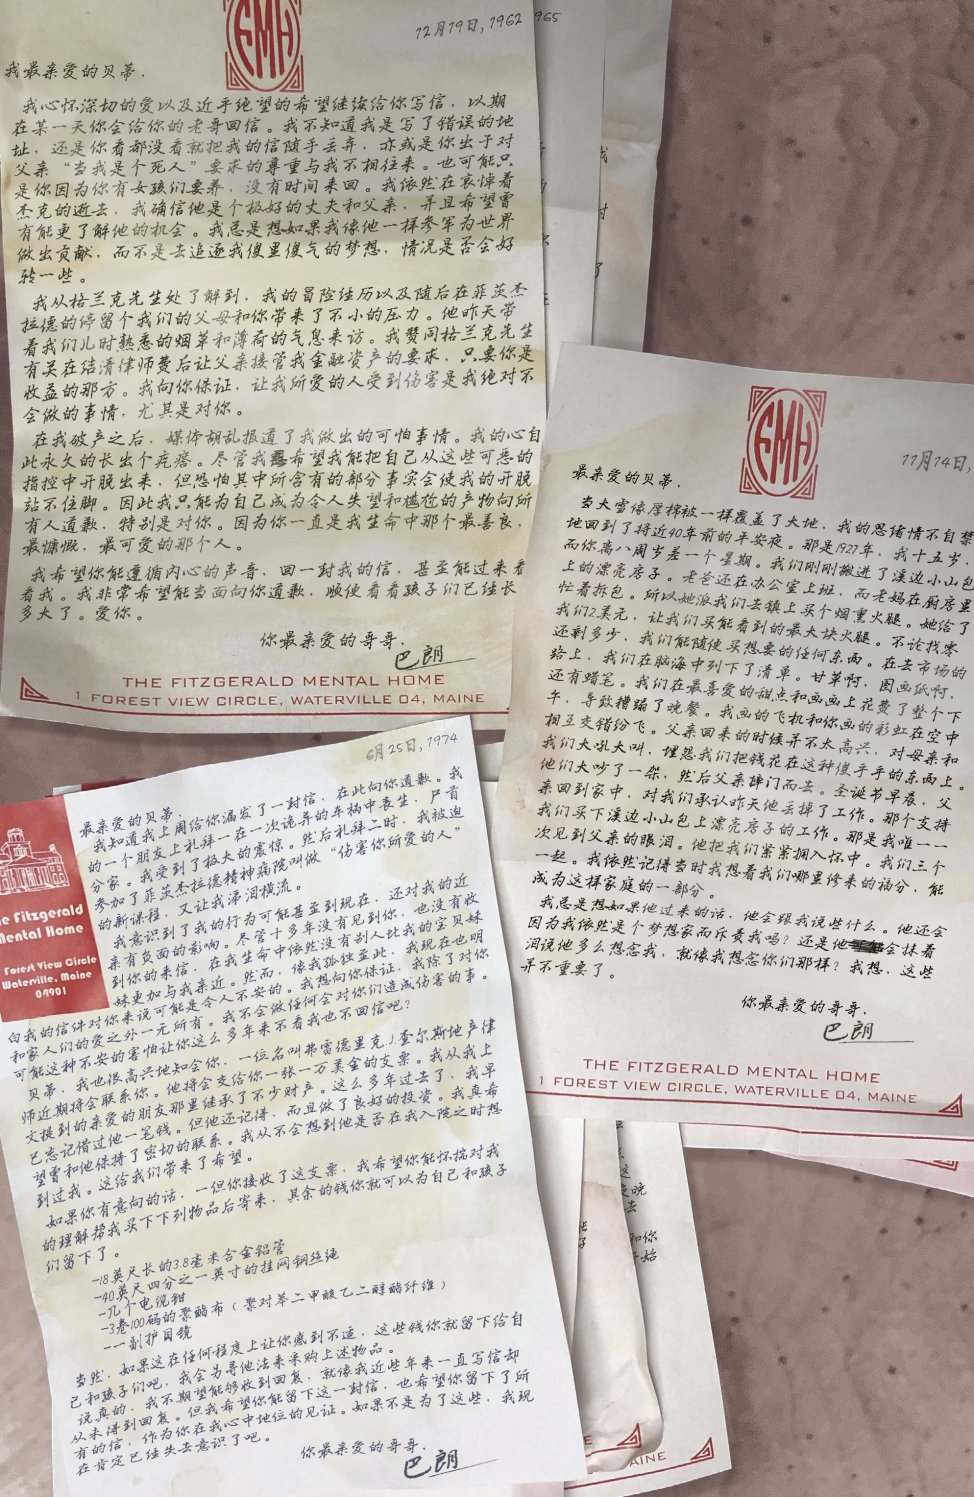 FMH
12月19日，1962
965
我最亲爱的贝蒂，
我心怀深切的爱以及近乎绝望的希望继续给你写信，以期
在某一天你会给你的老哥回信。我不知道我是写了错误的地
址，还是你看都没看就把我的信随手丢弃，亦或是你出于对
父亲“当我是个死人”要求的尊重与我不相往来。也可能只
是你因为你有女孩们要养，没有时间来回。我依然在哀悼着
杰克的逝去，我确信他是个极好的丈夫和父亲，并且希望曾
有能更了解他的机会。我总是想如果我像他一样参军为世界
做出贡献，而不是去追逐我傻里傻气的梦想，情况是否会好
转一些。
我从格兰克先生处了解到，我的冒险经历以及随后在菲茨杰
拉德的停留个我们的父母和你带来了不小的压力。他昨天带
着我们儿时熟悉的烟草和薄荷的气息来访。我赞同格兰克先生
有关在结清律师费后让父亲接管我金融资产的要求，只要你是
收益的那方。我向你保证，让我所爱的人受到伤害是我绝对不
会做的事情，尤其是对你。
在我破产之后，媒体胡乱报道了我做出的可怕事情。我的心自
此永久的长出个疙瘩。尽管我希望我能把自己从这些可恶的
指控中开脱出来，但恐怕其中所含有的部分事实会使我的开脱
站不住脚。因此我只能为自己成为令人失望和尴尬的产物向所
有人道歉，特别是对你。因为你一直是我生命中那个最善良，
最慷慨，最可爱的那个人。
我希望你能遵循内心的声音，回一封我的信，甚至能过来看
看我。我非常希望能当面向你道歉，顺便看看孩子们已经长
多大了。爱你。
你最亲爱的哥哥，
巴朗
THE FITZGERALD MENTAL HOME
1 FOREST VIEW CIRCLE, WATERVILLE 04, MAINE
FMH
11月14日，
最亲爱的贝蒂，
当大雪像厚棉被一样覆盖了大地，我的思绪情不自禁
地回到了将近40年前的平安夜。那是1927年，我十五岁，
而你离八周岁差一个星期。我们刚刚搬进了溪边小山包
上的漂亮房子。老爸还在办公室上班，而老妈在厨房里
忙着拆包。所以她派我们去镇上买个烟熏火腿。她给了
我们2美元，让我们买能看到的最大块火腿。不论找零
还剩多少，我们能随便买想要的任何东西。在去市场的
路上，我们在脑海中列下了清单。甘草啊，图画纸啊，
还有蜡笔。我们在最喜爱的甜点和画画上花费了整个下
午，导致糟蹋了晚餐。我画的飞机和你画的彩虹在空中
相互交错纷飞。父亲回来的时候并不太高兴，对母亲和
我们大吼大叫，埋怨我们把钱花在这种傻乎乎的东西上。
他们大吵了一架，然后父亲摔门而去。圣诞节早晨，父
亲回到家中，对我们承认昨天他丢掉了工作。那个支持
我们买下溪边小山包上漂亮房子的工作。那是我唯一一
次见到父亲的眼泪。他把我们紧紧拥入怀中。我们三个
一起。我依然记得当时我想着我们哪里修来的福分，能
成为这样家庭的一部分。
我总是想如果他过来的话，他会跟我说些什么。他还会
因为我依然是个梦想家而斥责我吗？还是他会抹着
泪说他多么想念我，就像我想念你们那样？我想，这些
并不重要了。
你最亲爱的哥哥，
巴朗
THE FITZGERALD MENTAL HOME
1 FOREST VIEW CIRCLE, WATERVILLE 04, MAINE
6月25日，1974
The Fitzgerald
Mental Home
1 Forest View Circle
Waterville, Maine
04901
最亲爱的贝蒂，
我知道我上周给你漏发了一封信，在此向你道歉。我
的一个朋友上礼拜一在一次诡异的车祸中丧生，尸首
分家。我受到了极大的震惊。然后礼拜二时，我被迫
参加了菲茨杰拉德精神病院叫做“伤害你所爱的人”
的新课程，又让我涕泪横流。
我意识到了我的行为可能甚至到现在，还对我的近
亲有负面的影响。尽管十多年没有见到你，也没有收
到你的来信，在我生命中依然没有别人比我的宝贝妹
妹更加与我亲近。然而，像我孤独至此，我现在也明
白我的信件对你来说可能是令人不安的。我想向你保证，我除了对你
和家人们的爱之外一无所有。我不会做任何会对你们造成伤害的事。
可能这种不安的害怕让你这么多年来不看我也不回信吧？
贝蒂，我也很高兴地知会你，一位名叫弗雷德里克.J.查尔斯地产律
师近期将会联系你。他将会交给你一张一万美金的支票。我从我上
文提到的亲爱的朋友那里继承了不少财产。这么多年过去了，我早
已忘记借过他一笔钱。但他还记得，而且做了良好的投资。我真希
望曾和他保持了密切的联系。我从不会想到他是否在我入院之时想
到过我。这给我们带来了希望。
如果你有意向的话，一但你接收了这支票，我希望你能怀揣对我
的理解帮我买下下列物品后寄来，其余的钱你就可以为自己和孩子
们留下了。
-18英尺长的3.8毫米合金铝管
-40英尺四分之一英寸的挂网钢丝绳
-几个电缆钳
-3卷100码的聚酯布（聚对苯二甲酸乙二醇酯纤维）
-一副护目镜
当然，如果这在任何程度上让你感到不适，这些钱你就留下给自
己和孩子们吧，我会另寻他法来采购上述物品。
说真的，我不期望能够收到回复，就像我近些年来一直写信却
从未得到回复。但我希望你能留下这一封信，也希望你留下了所
有的信，作为你在我心中地位的见证。如果不是为了这些，我现
在肯定已经失去意识了吧。
你最亲爱的哥哥，
巴朗
MAINE